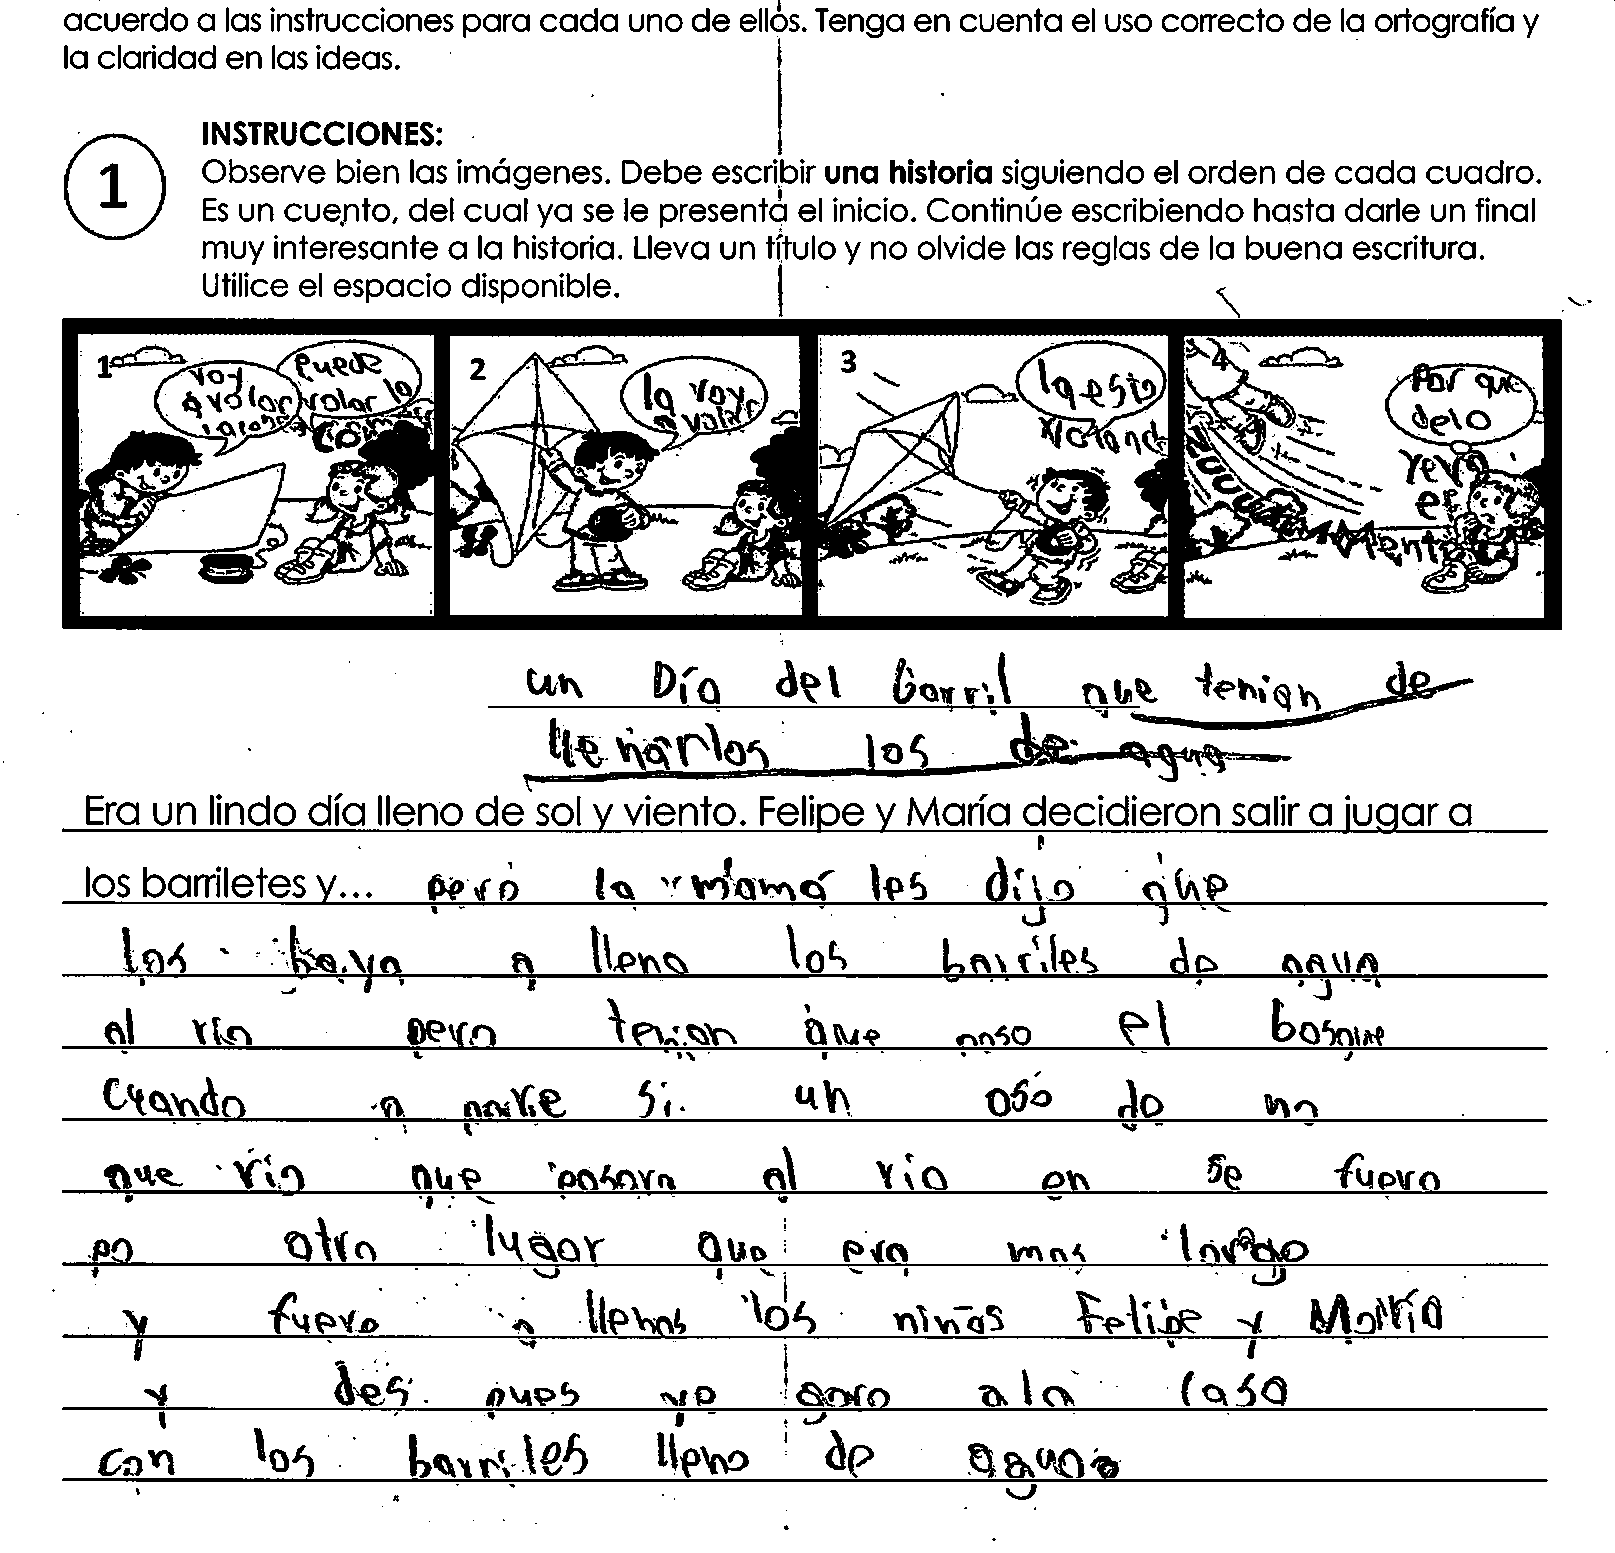 acuerdo a las instrucciones para cada uno de ellos. Tenga en cuenta el uso correcto de la ortografía y
la claridad en las ideas.
1
INSTRUCCIONES:
Observe bien las imágenes. Debe escribir una historia siguiendo el orden de cada cuadro.
Es un cuento, del cual ya se le presenta el inicio. Continúe escribiendo hasta darle un final
muy interesante a la historia. Lleva un título y no olvide las reglas de la buena escritura.
Utilice el espacio disponible.
1
voy
a volar
Puede
volar la
2
la voy
a volar
3
la esto
Voland
4
Por que
delo
un Día del barril que tenian de
llenarlos los de agua
Era un lindo día lleno de sol y viento. Felipe y María decidieron salir a jugar a
los barriletes y... pero la mamá les dijo que
los baya a lleno los barriles de agua
al rio pero tenian que paso el bosque
Cuando a parte si un oso do no
que rio que pasara al rio en se fuero
po otro lugar que era mas largo
y fuero a llenas los niños Felipe y María
y des pues ye garo a la casa
con los barriles lleno de agua